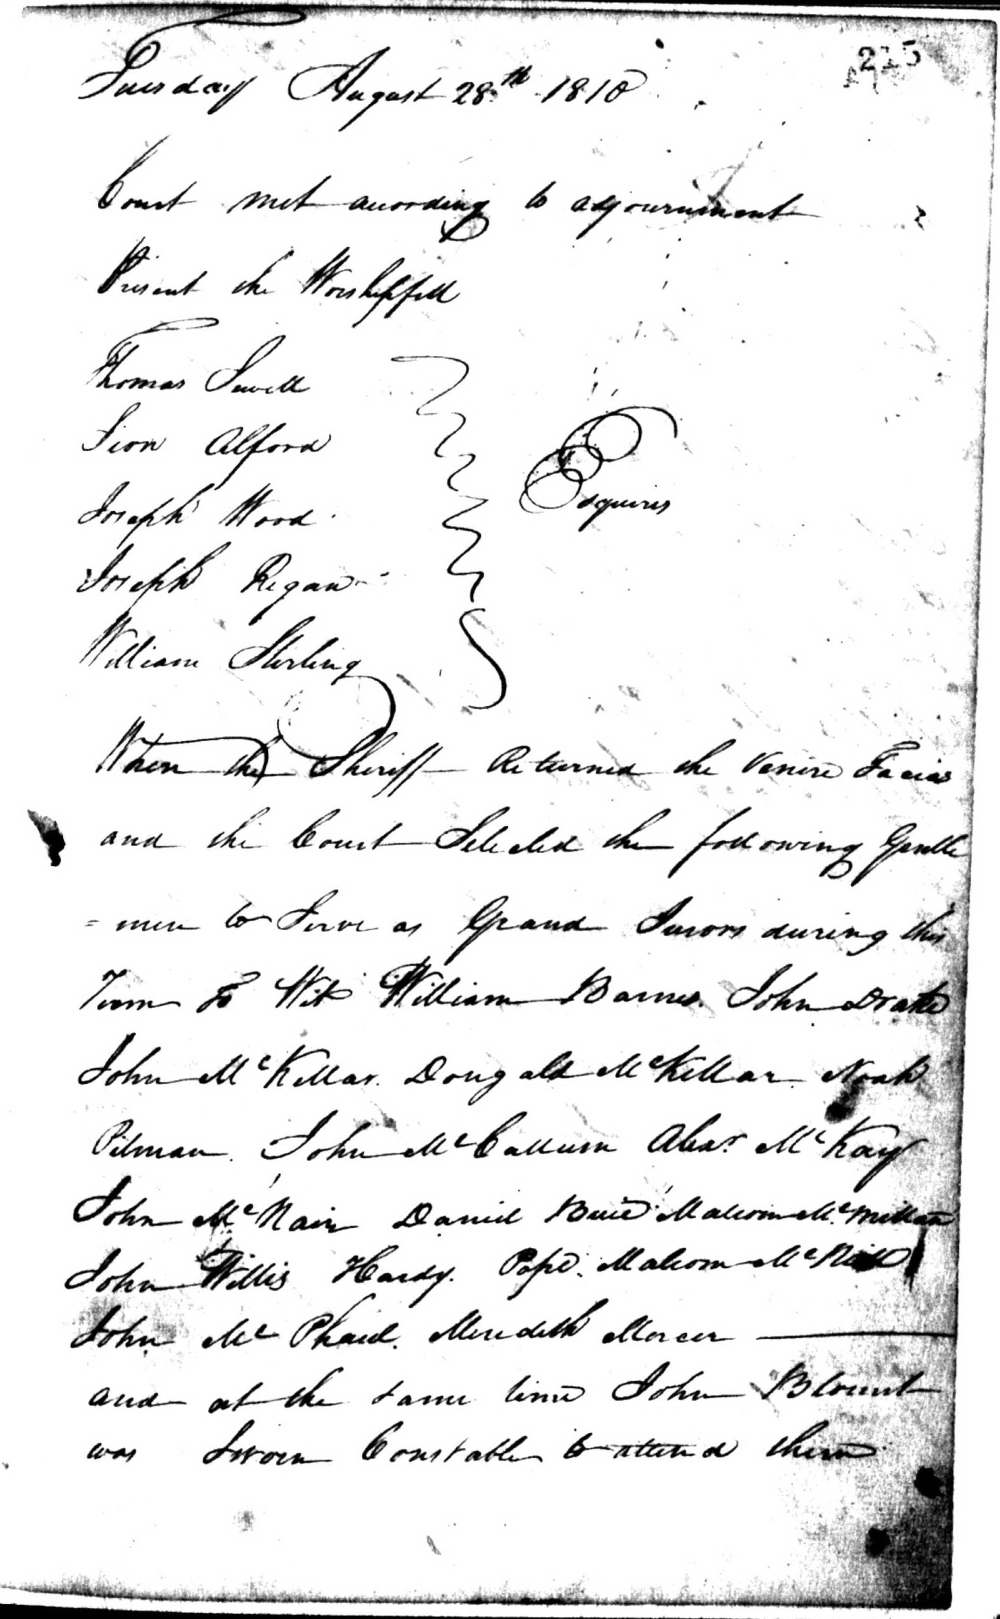 215
Tuesday August 28th 1810
Court met acording to adjournment
Present the Worshipfull
Thomas Sewell
Sion Alford
Joseph Wood
Joseph Regan
William Sterling
Esquires
When the Sheriff Returned the Venire Facias
and the Court Selected the following Gentle
= men to Serve as Grand Jurors during this
Term To Wit William Barnes. John Drake
John McKellar. Dougald McKellar. Noah
Pitman. John McCallum Alexr. McKay
John McNair Daniel Buie Malcom McMillan
John Willis Hardy. Pope. Malcom McNeill
John Mc Phaul. Meredith Mercer
and at the same time John Blount
was Sworn Constable to attend them